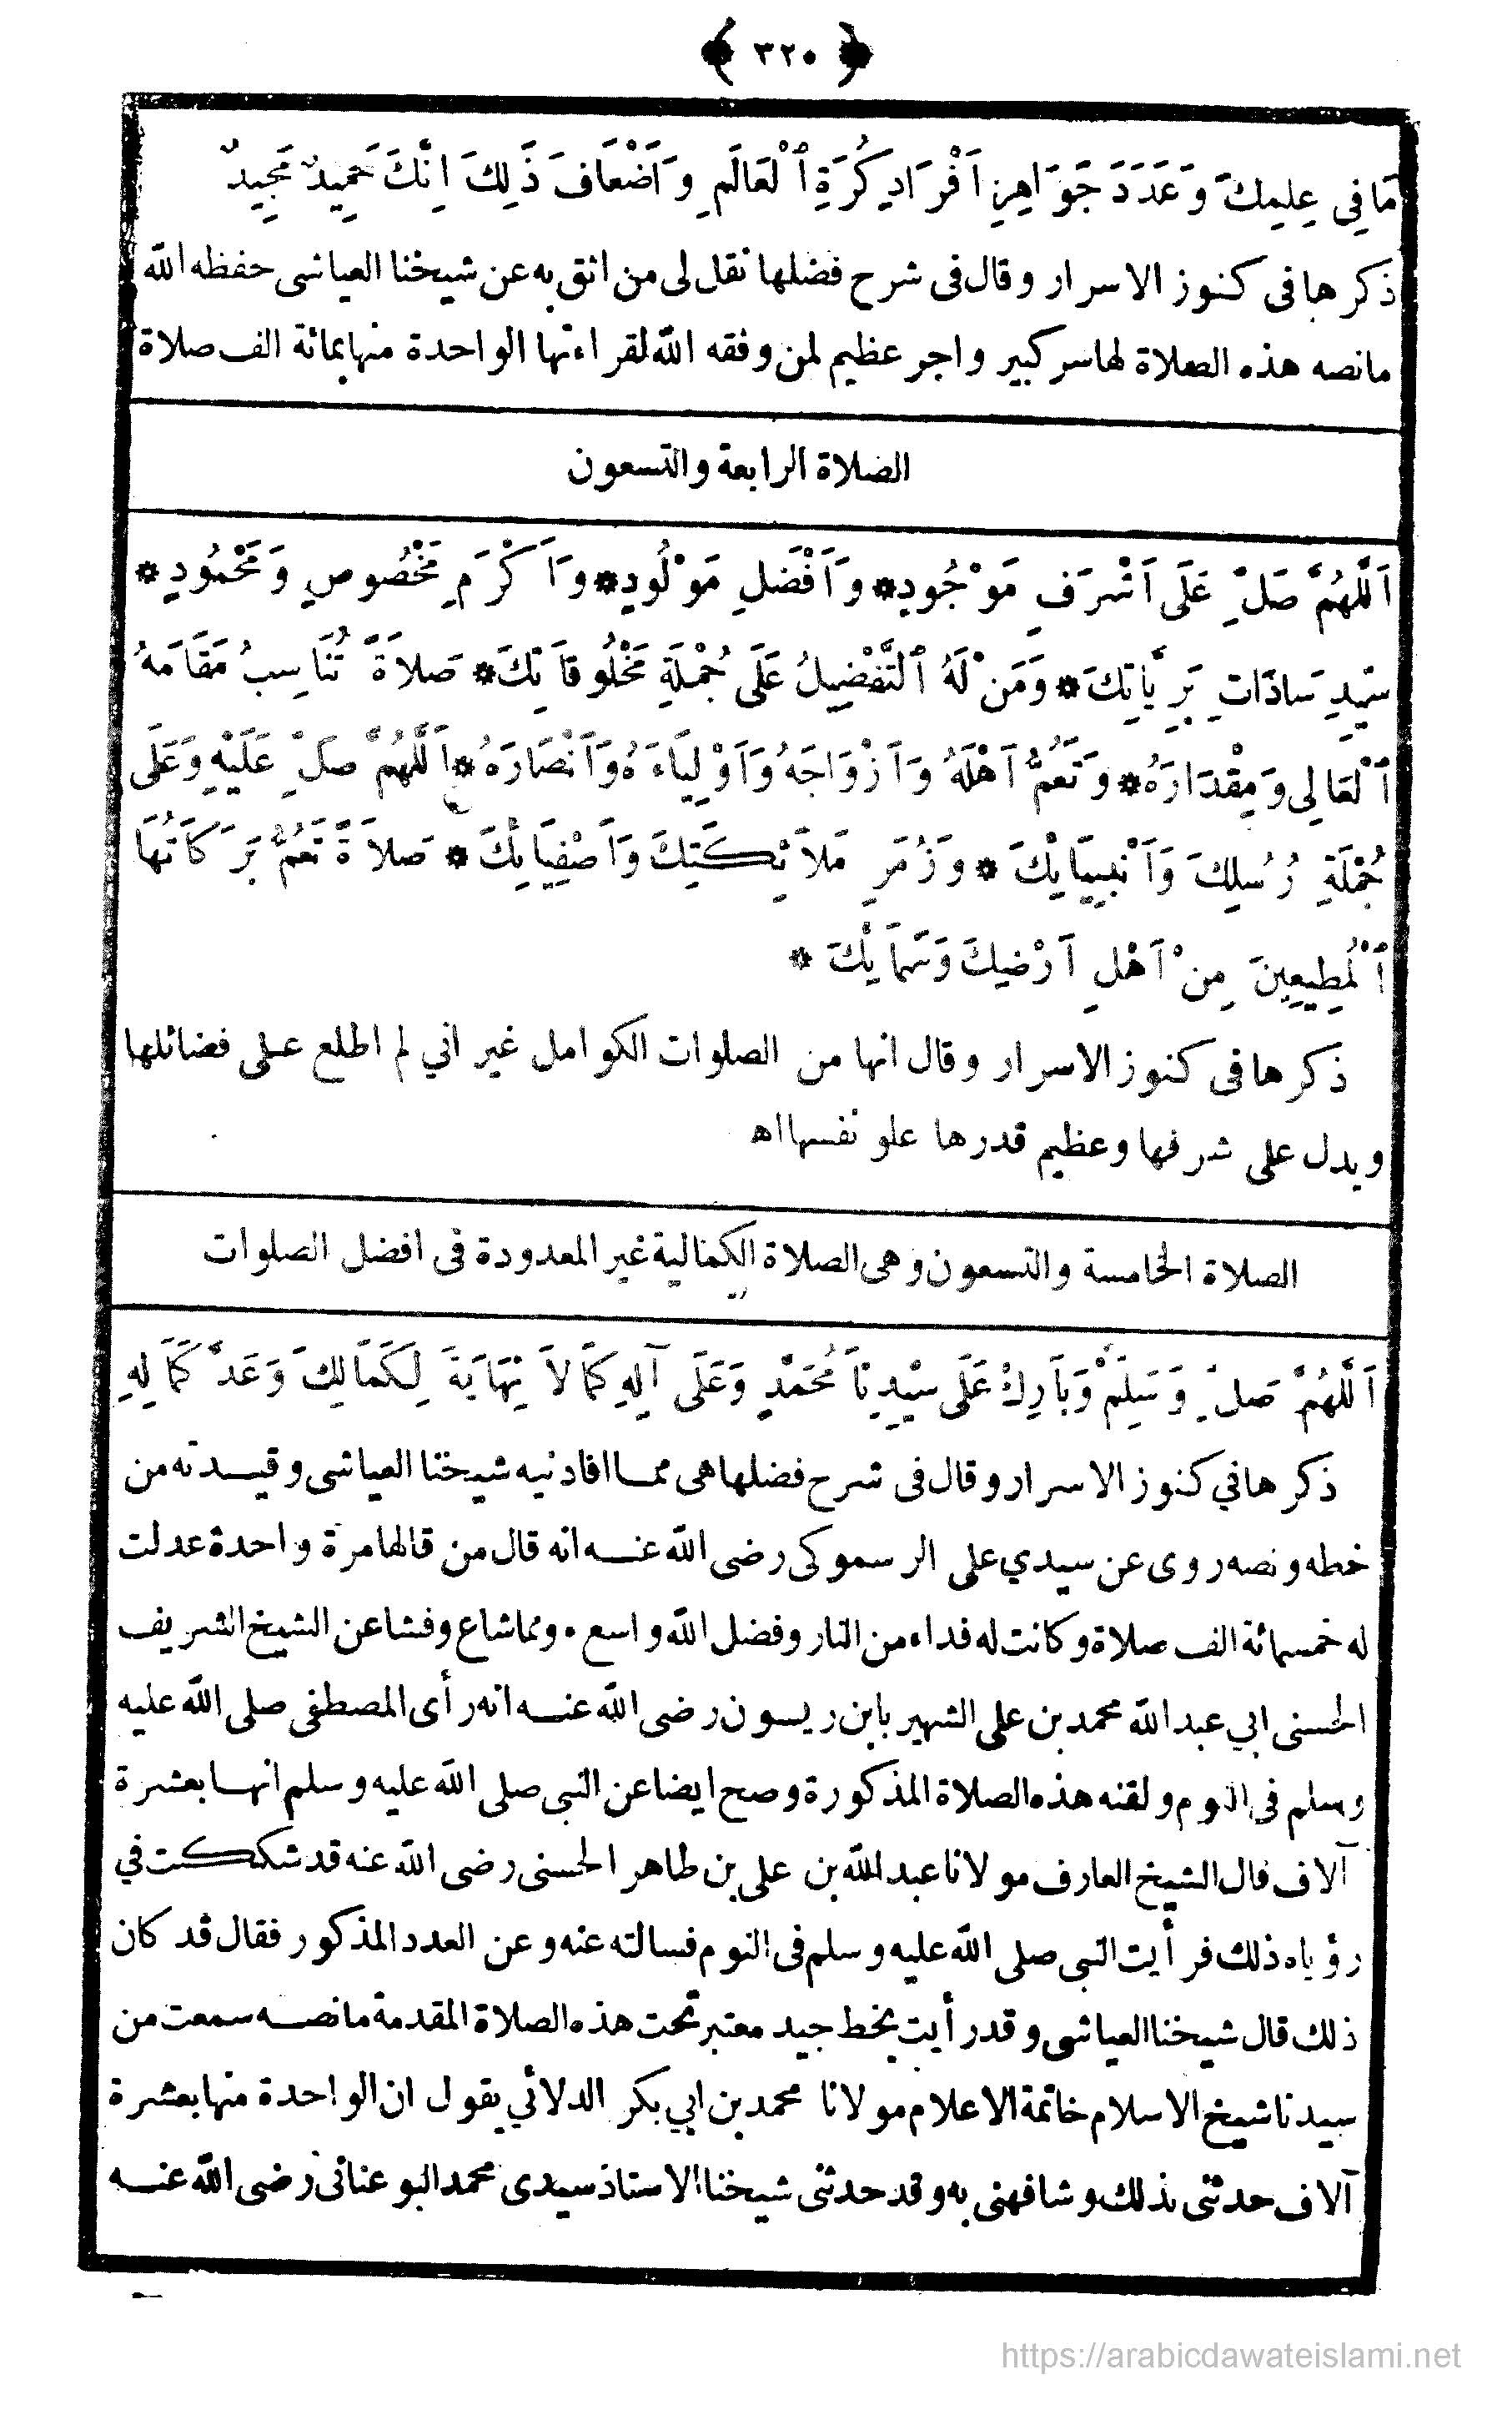 ﴿ ٣٢٠ ﴾
مَا فِي عِلْمِكَ وَعَدَدَ جَوَاهِرِ اَفْرَادِ كُرَةِ ٱلْعَالَمِ وَاَضْعَافَ ذَلِكَ اِنَّكَ حَمِيدٌ مَجِيدٌ
ذكرها فى كنوز الاسرار وقال فى شرح فضلها نقل لى من اثق به عن شيخنا العياشى حفظه الله
مانصه هذه الصلاة لها سر كبير واجر عظيم لمن وفقه الله لقراءتها الواحدة منها بمائة الف صلاة
الصلاة الرابعة والتسعون
اَللَّهُمَّ صَلِّ عَلَى اَشْرَفِ مَوْجُودٍ * وَاَفْضَلِ مَوْلُودٍ * وَاَكْرَمِ مَخْصُوصٍ وَمَحْمُودٍ *
سَيِّدِ سَادَاتِ بَرِيَّاتِكَ * وَمَنْ لَهُ ٱلتَّفْضِيلُ عَلَى جُمْلَةِ مَخْلُوقَاتِكَ * صَلاَةً تُنَاسِبُ مَقَامَهُ
ٱلْعَالِي وَمِقْدَارَهُ * وَتَعُمُّ اَهْلَهُ وَاَزْوَاجَهُ وَاَوْلِيَاءَهُ وَاَنْصَارَهُ * اَللَّهُمَّ صَلِّ عَلَيْهِ وَعَلَى
جُمْلَةِ رُسُلِكَ وَاَنْبِيَائِكَ * وَزُمَرِ مَلاَئِكَتِكَ وَاَصْفِيَائِكَ * صَلاَةً تَعُمُّ بَرَكَاتُهَا
ٱلْمُطِيعِينَ مِنْ اَهْلِ اَرْضِكَ وَسَمَائِكَ *
ذكرها فى كنوز الاسرار وقال انها من الصلوات الكوامل غير اني لم اطلع على فضائلها
ويدل على شرفها وعظيم قدرها علو نفسها اه
الصلاة الخامسة والتسعون وهى الصلاة الكمالية غير المعدودة فى افضل الصلوات
اَللَّهُمَّ صَلِّ وَسَلِّمْ وَبَارِكْ عَلَى سَيِّدِنَا مُحَمَّدٍ وَعَلَى آلِهِ كَمَا لاَ نِهَايَةَ لِكَمَالِكَ وَعَدَّ كَمَالِهِ
ذكرها في كنوز الاسرار وقال فى شرح فضلها هى مما افادنيه شيخنا العياشى وقيدته من
خطه ونصه روى عن سيدي على الرسموكى رضى الله عنه انه قال من قالها مرة واحدة عدلت
له خمسمائة الف صلاة وكانت له فداء من النار وفضل الله واسع ٠ ومما شاع وفشا عن الشيخ الشريف
الحسنى ابي عبد الله محمد بن على الشهير بابن ريسون رضى الله عنه انه رأى المصطفى صلى الله عليه
وسلم فى النوم ولقنه هذه الصلاة المذكورة وصح ايضا عن النبى صلى الله عليه وسلم انها بعشرة
آلاف قال الشيخ العارف مولانا عبد الله بن على بن طاهر الحسنى رضى الله عنه قد شككت في
رؤياه ذلك فرأيت النبى صلى الله عليه وسلم فى النوم فسالته عنه وعن العدد المذكور فقال قد كان
ذلك قال شيخنا العياشى وقد رأيت بخط جيد معتبر تحت هذه الصلاة المقدمة مانصه سمعت من
سيدنا شيخ الاسلام خاتمة الاعلام مولانا محمد بن ابي بكر الدلائي يقول ان الواحدة منها بعشرة
آلاف حدثنى بذلك وشافهنى به وقد حدثنى شيخنا الاستاذ سيدى محمد البوعنانى رضى الله عنه
https://arabicdawateislami.net